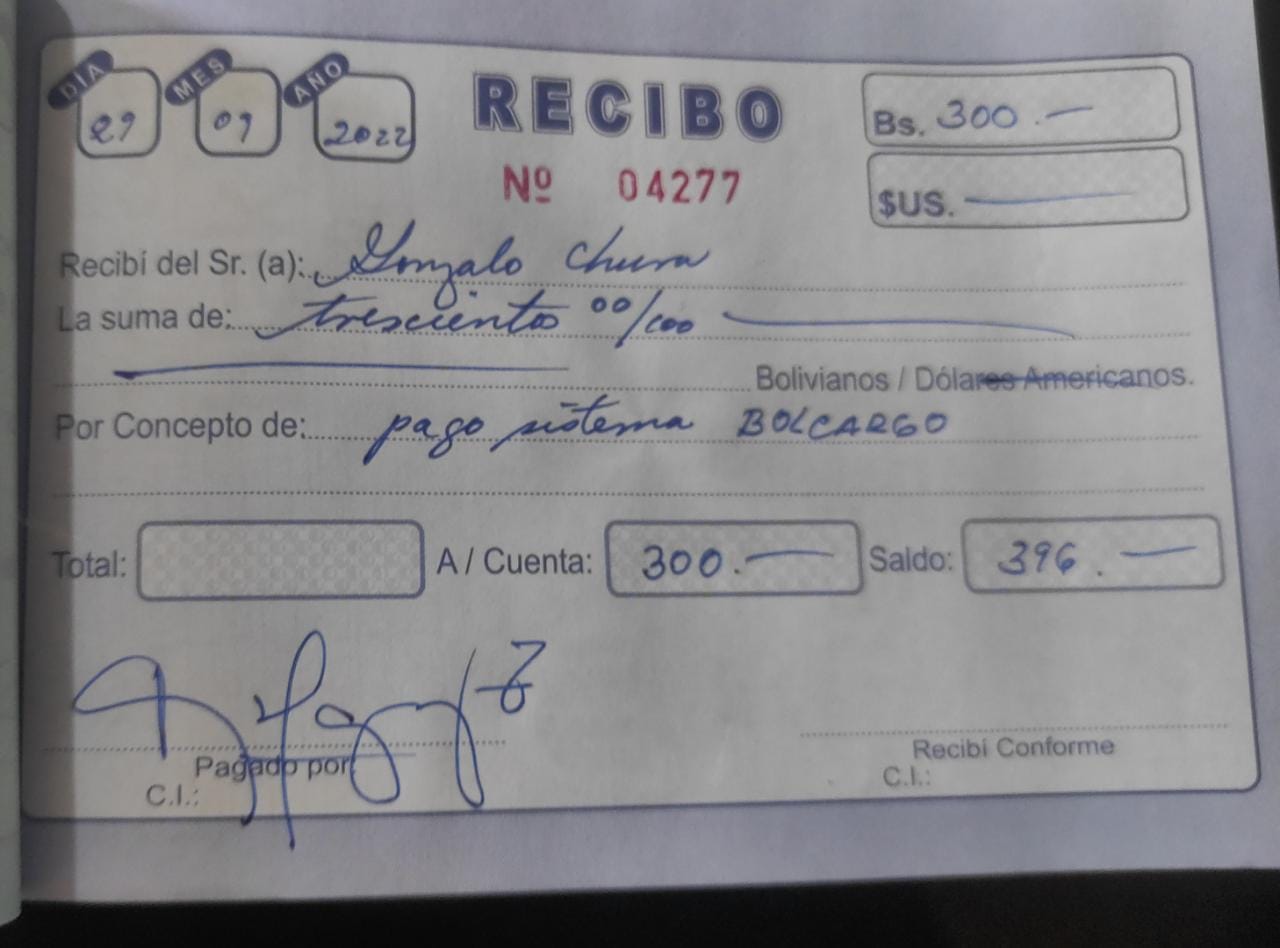 DÍA 29 MES 09 AÑO 2022
RECIBO
Nº 04277
Bs. 300.—
$US. —
Recibí del Sr. (a): Gonzalo Chura
La suma de: trescientos 00/100
Bolivianos / Dólares Americanos.
Por Concepto de: pago sistema BOLCARGO
Total: A / Cuenta: 300.— Saldo: 396.—
Pagado por
C.I.:
Recibí Conforme
C.I.: